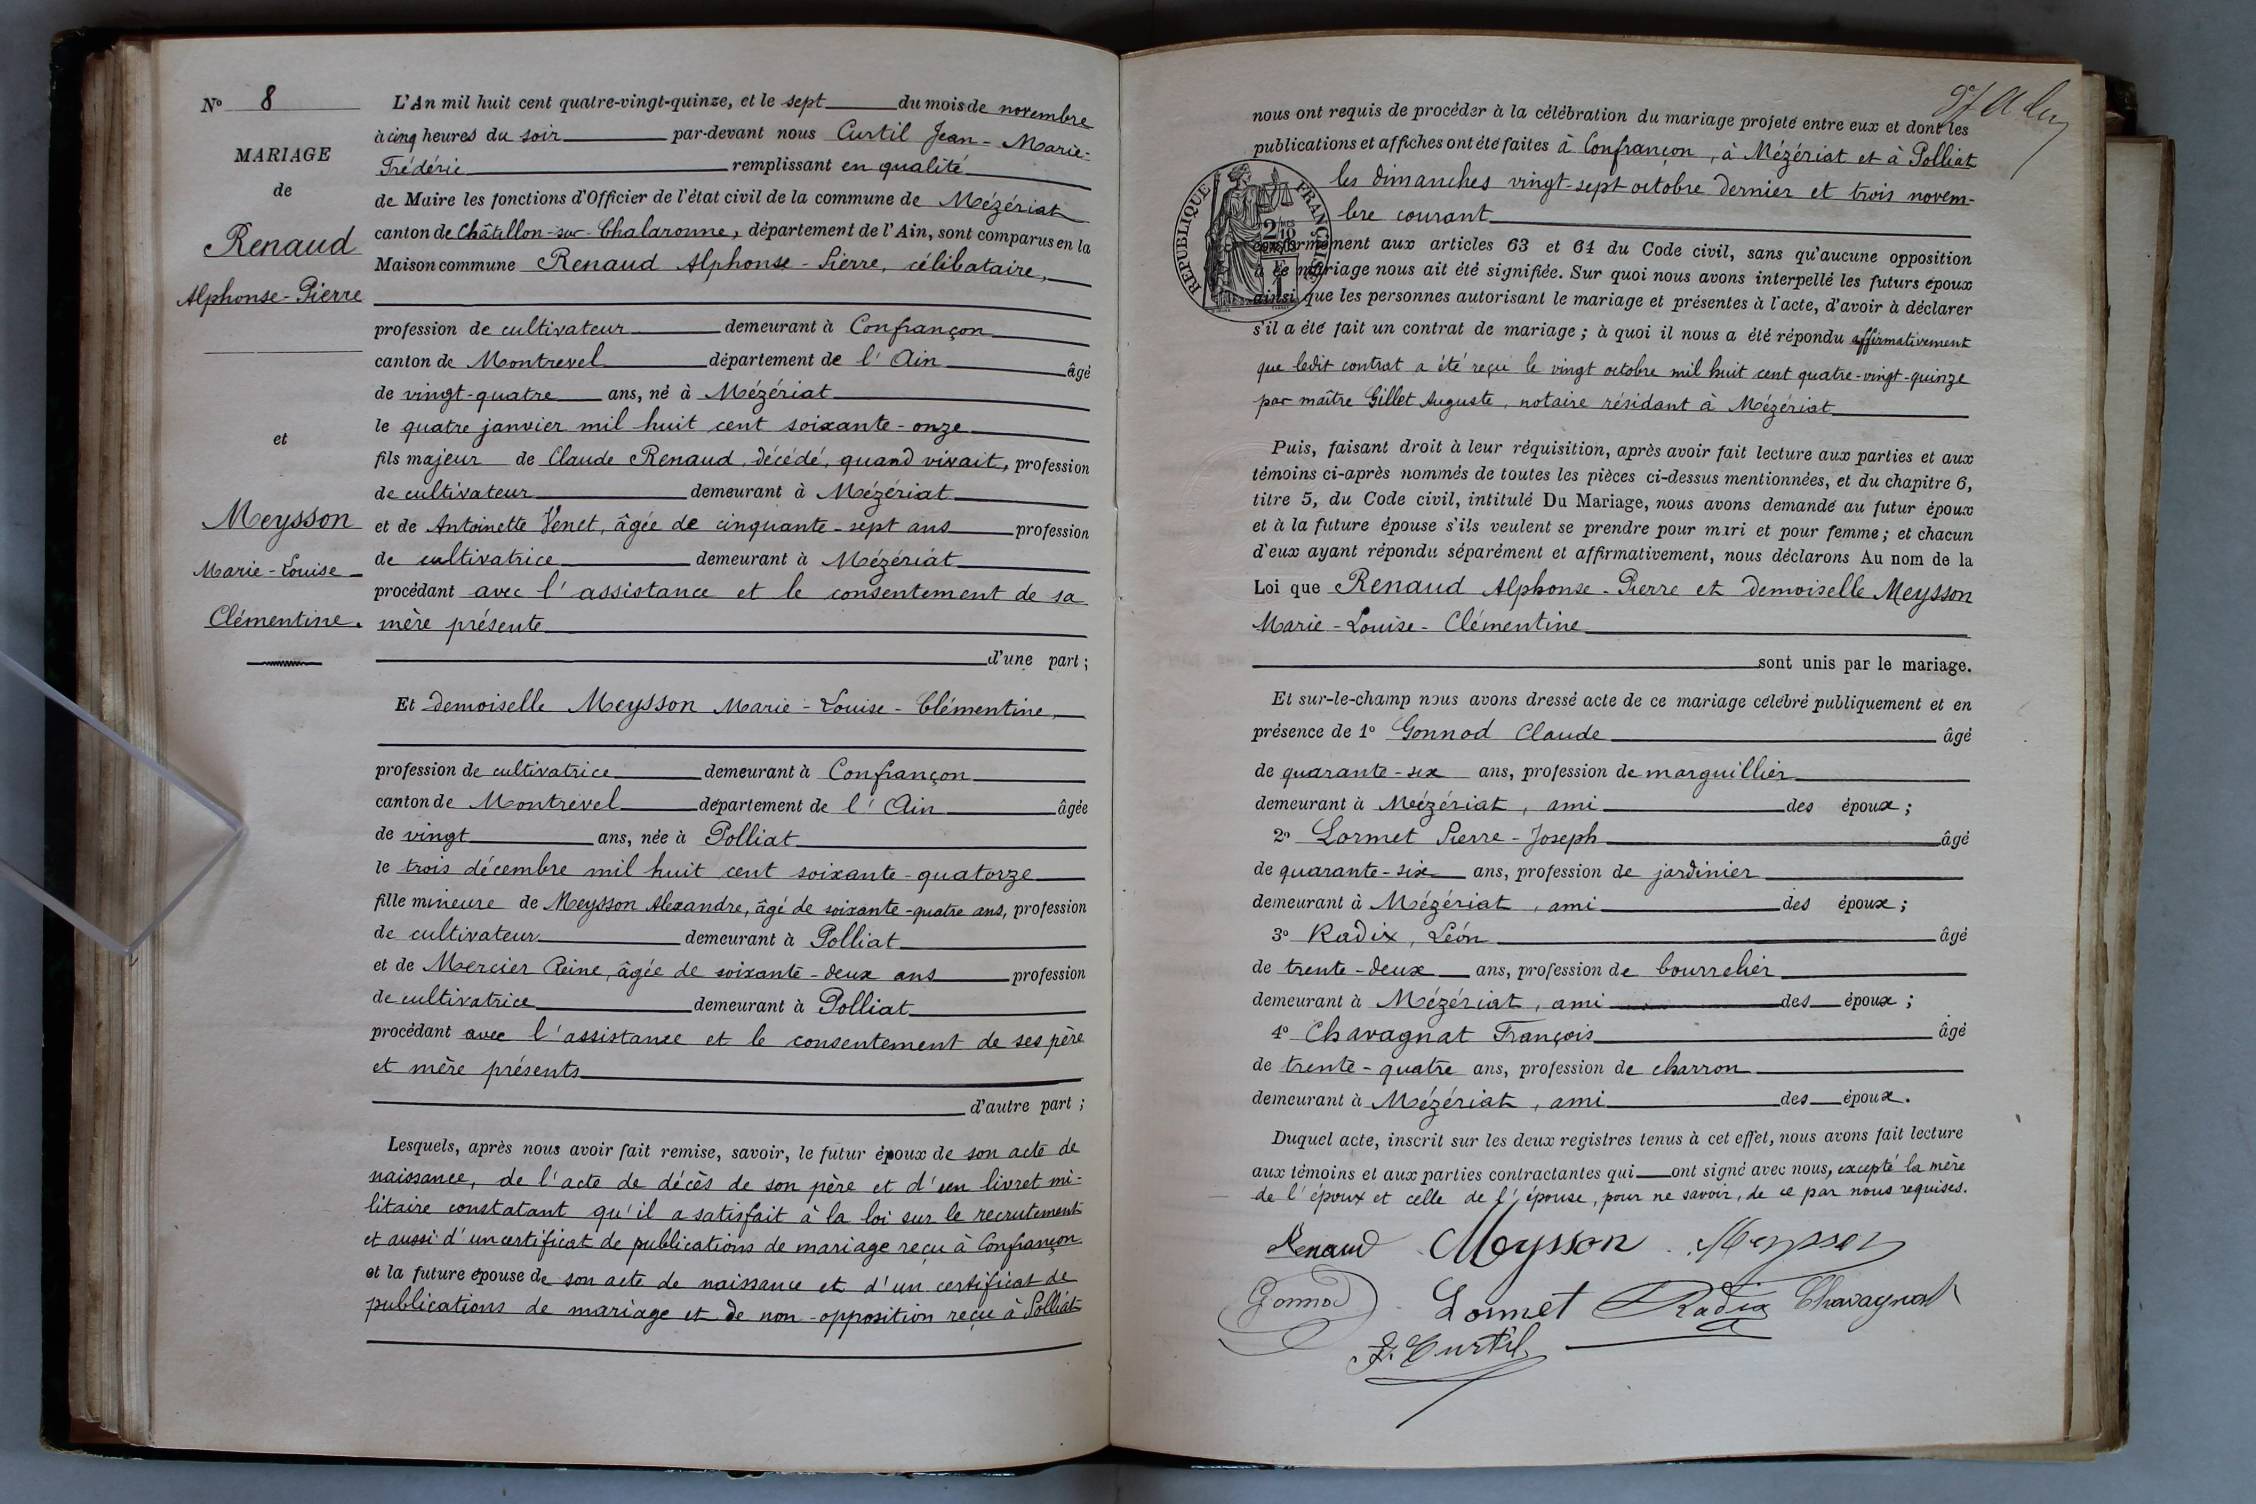 N° 8
MARIAGE
de
Renaud
Alphonse-Pierre
et
Meysson
Marie-Louise
Clémentine.
L'An mil huit cent quatre-vingt-quinze, et le sept du mois de novembre
à cinq heures du soir par-devant nous Curtil Jean-Marie-
Frédéric remplissant en qualité
de Maire les fonctions d'Officier de l'état civil de la commune de Mézériat
canton de Châtillon-sur-Chalaronne, département de l'Ain, sont comparus en la
Maison commune Renaud Alphonse-Pierre, célibataire,
profession de cultivateur demeurant à Confrançon
canton de Montrevel département de l'Ain âgé
de vingt-quatre ans, né à Mézériat
le quatre janvier mil huit cent soixante-onze
fils majeur de Claude Renaud, décédé, quand vivait, profession
de cultivateur demeurant à Mézériat
et de Antoinette Venet, âgée de cinquante-sept ans profession
de cultivatrice demeurant à Mézériat
procédant avec l'assistance et le consentement de sa
mère présente
d'une part ;
Et demoiselle Meysson Marie-Louise-Clémentine,
profession de cultivatrice demeurant à Confrançon
canton de Montrevel département de l'Ain âgée
de vingt ans, née à Polliat
le trois décembre mil huit cent soixante-quatorze
fille mineure de Meysson Alexandre, âgé de soixante-quatre ans, profession
de cultivateur demeurant à Polliat
et de Mercier Reine, âgée de soixante-deux ans profession
de cultivatrice demeurant à Polliat
procédant avec l'assistance et le consentement de ses père
et mère présents
d'autre part ;
Lesquels, après nous avoir fait remise, savoir, le futur époux de son acte de
naissance, de l'acte de décès de son père et d'un livret mi-
litaire constatant qu'il a satisfait à la loi sur le recrutement
et aussi d'un certificat de publications de mariage reçu à Confrançon
et la future épouse de son acte de naissance et d'un certificat de
publications de mariage et de non-opposition reçu à Polliat
nous ont requis de procéder à la célébration du mariage projeté entre eux et dont les
publications et affiches ont été faites à Confrançon, à Mézériat et à Polliat
les dimanches vingt-sept octobre dernier et trois novem-
bre courant
RÉPUBLIQUE FRANÇAISE
conformément aux articles 63 et 64 du Code civil, sans qu'aucune opposition
à ce mariage nous ait été signifiée. Sur quoi nous avons interpellé les futurs époux
ainsi que les personnes autorisant le mariage et présentes à l'acte, d'avoir à déclarer
s'il a été fait un contrat de mariage ; à quoi il nous a été répondu affirmativement
que ledit contrat a été reçu le vingt octobre mil huit cent quatre-vingt-quinze
par maître Gillet Auguste, notaire résidant à Mézériat
Puis, faisant droit à leur réquisition, après avoir fait lecture aux parties et aux
témoins ci-après nommés de toutes les pièces ci-dessus mentionnées, et du chapitre 6,
titre 5, du Code civil, intitulé Du Mariage, nous avons demandé au futur époux
et à la future épouse s'ils veulent se prendre pour mari et pour femme ; et chacun
d'eux ayant répondu séparément et affirmativement, nous déclarons Au nom de la
Loi que Renaud Alphonse-Pierre et demoiselle Meysson
Marie-Louise-Clémentine
sont unis par le mariage.
Et sur-le-champ nous avons dressé acte de ce mariage célébré publiquement et en
présence de 1° Gonnod Claude âgé
de quarante-six ans, profession de marguillier
demeurant à Mézériat, ami des époux ;
2° Lormet Pierre-Joseph âgé
de quarante-six ans, profession de jardinier
demeurant à Mézériat, ami des époux ;
3° Radix, Léon âgé
de trente-deux ans, profession de bourrelier
demeurant à Mézériat, ami des époux ;
4° Chavagnat François âgé
de trente-quatre ans, profession de charron
demeurant à Mézériat, ami des époux.
Duquel acte, inscrit sur les deux registres tenus à cet effet, nous avons fait lecture
aux témoins et aux parties contractantes qui ont signé avec nous, excepté la mère
de l'époux et celle de l'épouse, pour ne savoir, de ce par nous requises.
Renaud Meysson Meysson
Gonnod Lormet Radix Chavagnat
F. Curtil